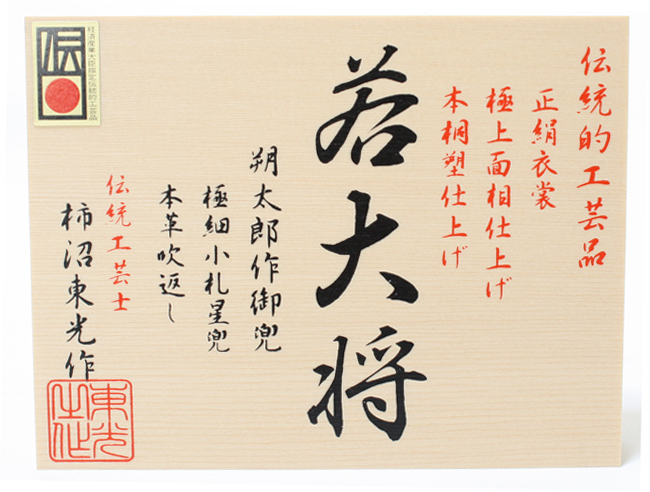 伝統的工芸品
正絹衣裳
極上面相仕上げ
本桐塑仕上げ
若大将
朔太郎作御兜
極細小札星兜
本革吹返し
伝統工芸士
柿沼東光作
東光
之作
伝
経済産業大臣指定伝統的工芸品